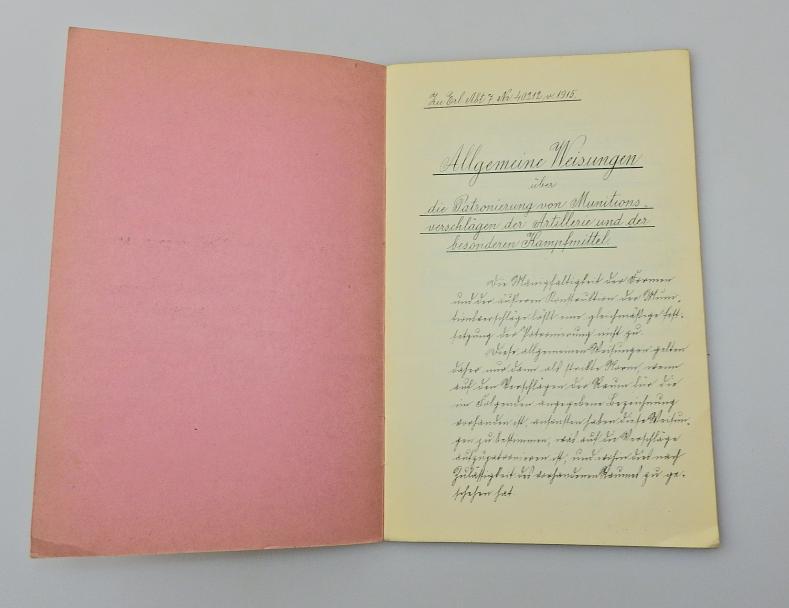 Zu Erl. Abt 7 Nr. 40212 v. 1915.
Allgemeine Weisungen
über
die Patronierung von Munitions-
verschlägen der Artillerie und der
besonderen Kampfmittel.
Die Mannigfaltigkeit der Formen
und der äußeren Konstruktion der Mun-
tionsverschläge läßt eine gleichmäßige Fest-
setzung der Patronierung nicht zu.
Diese allgemeinen Weisungen gelten
daher nur dann als strikte Norm, wenn
auf den Verschlägen der Raum für die
im Folgenden angegebene Bezeichnung
vorhanden ist, ansonsten haben diese Weisun-
gen zu bestimmen, was auf die Verschläge
aufzupatronieren ist, und wohin dies nach
Zulässigkeit des vorhandenen Raumes zu ge-
schehen hat.